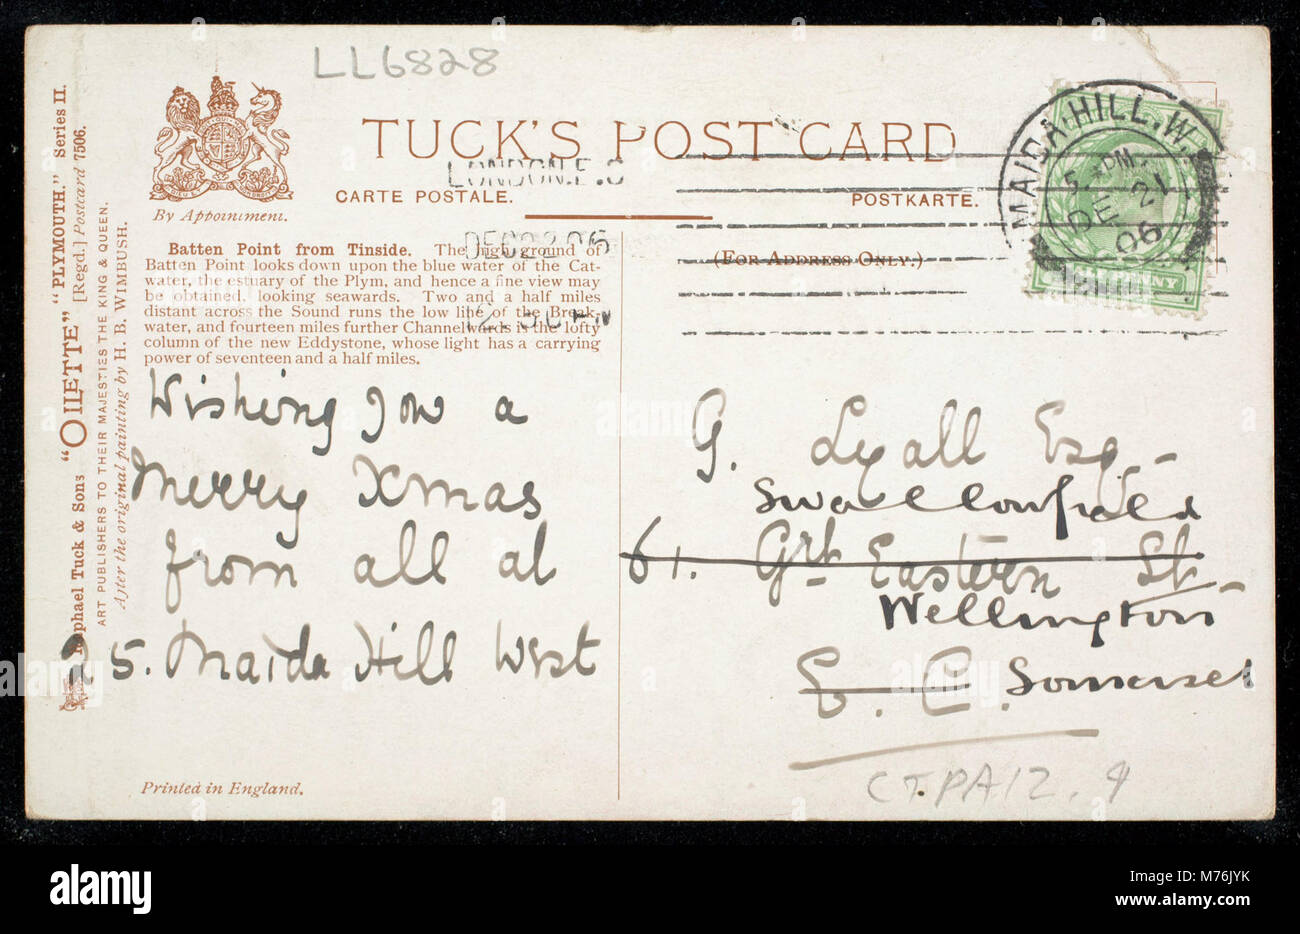 LL6828
Raphael Tuck & Sons "OILETTE" "PLYMOUTH." Series II.
[Regd.] Postcard 7506.
ART PUBLISHERS TO THEIR MAJESTIES THE KING & QUEEN.
After the original painting by H. B. WIMBUSH.
By Appointment.
TUCK'S POST CARD
CARTE POSTALE.
POSTKARTE.
(FOR ADDRESS ONLY.)
LONDON.E.C
DEC 22 06
MAIDA-HILL.W.
5. PM
DE 21
06
HALFPENNY
Batten Point from Tinside. The high ground of
Batten Point looks down upon the blue water of the Cat-
water, the estuary of the Plym, and hence a fine view may
be obtained, looking seawards. Two and a half miles
distant across the Sound runs the low line of the Break-
water, and fourteen miles further Channelwards is the lofty
column of the new Eddystone, whose light has a carrying
power of seventeen and a half miles.
Wishing you a
Merry Xmas
from all at
5. Maida Hill West
G. Lyall Esq.
Swallowfield
61. Grt Eastern St.
Wellington
E. C. Somerset
CTPA12.9
Printed in England.
alamy
alamy
Image ID: M76JYK
www.alamy.com